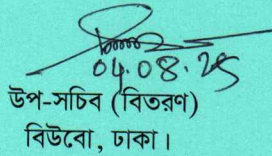 04.08.25
উপ-সচিব (বিতরণ)
বিউবো, ঢাকা।